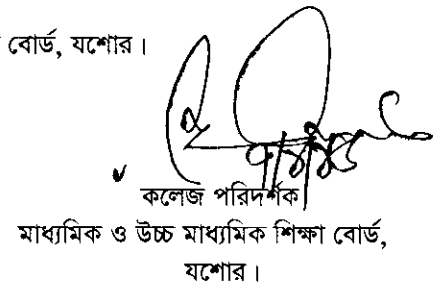 বোর্ড, যশোর।
কলেজ পরিদর্শক
মাধ্যমিক ও উচ্চ মাধ্যমিক শিক্ষা বোর্ড,
যশোর।